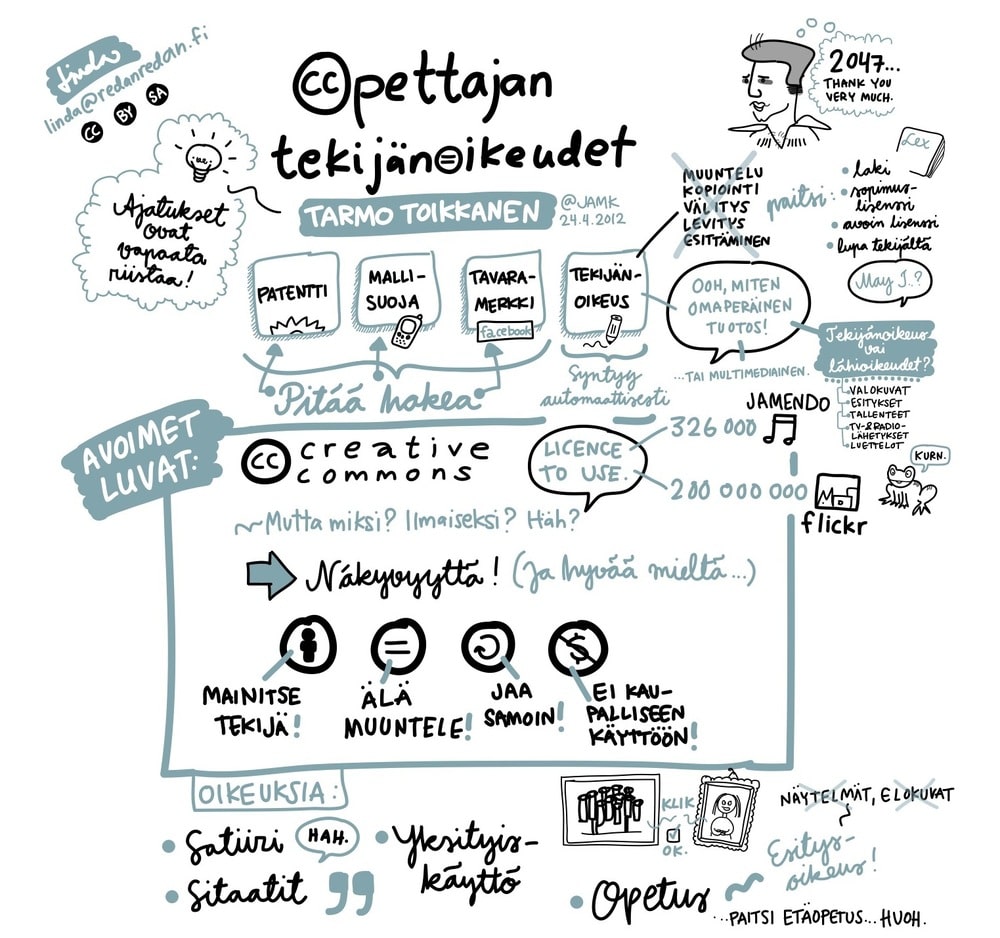 Linda
linda@redanredan.fi
CC BY SA
ccpettajan
tekijänoikeudet
TARMO TOIKKANEN
@JAMK
24.4.2012
2047...
THANK YOU
VERY MUCH.
Ajatukset
ovat
vapaata
riistaa!
PATENTTI
MALLI-
SUOJA
TAVARA-
MERKKI
facebook
TEKIJÄN-
OIKEUS
Pitää hakea
Syntyy
automaattisesti
MUUNTELU
KOPIOINTI
VÄLITYS
LEVITYS
ESITTÄMINEN
paitsi:
Lex
• laki
• sopimus-
lisenssi
• avoin lisenssi
• lupa tekijältä
May I..?
OOH, MITEN
OMAPERÄINEN
TUOTOS!
...TAI MULTIMEDIAINEN.
Tekijänoikeus
vai
lähioikeudet?
VALOKUVAT
ESITYKSET
TALLENTEET
TV-&RADIO-
LÄHETYKSET
LUETTELOT
KURN.
AVOIMET
LUVAT:
cc creative
commons
LICENCE
TO USE.
326 000
JAMENDO
200 000 000
flickr
Mutta miksi? Ilmaiseksi? Häh?
Näkyvyyttä! (Ja hyvää mieltä...)
MAINITSE
TEKIJÄ!
ÄLÄ
MUUNTELE!
JAA
SAMOIN!
EI KAU-
PALLISEEN
KÄYTTÖÖN!
OIKEUKSIA:
• Satiiri
HAH.
• Sitaatit
• Yksityis-
käyttö
KLIK
OK.
• Opetus
NÄYTELMÄT, ELOKUVAT
Esitys-
oikeus!
...PAITSI ETÄOPETUS...HUOH.